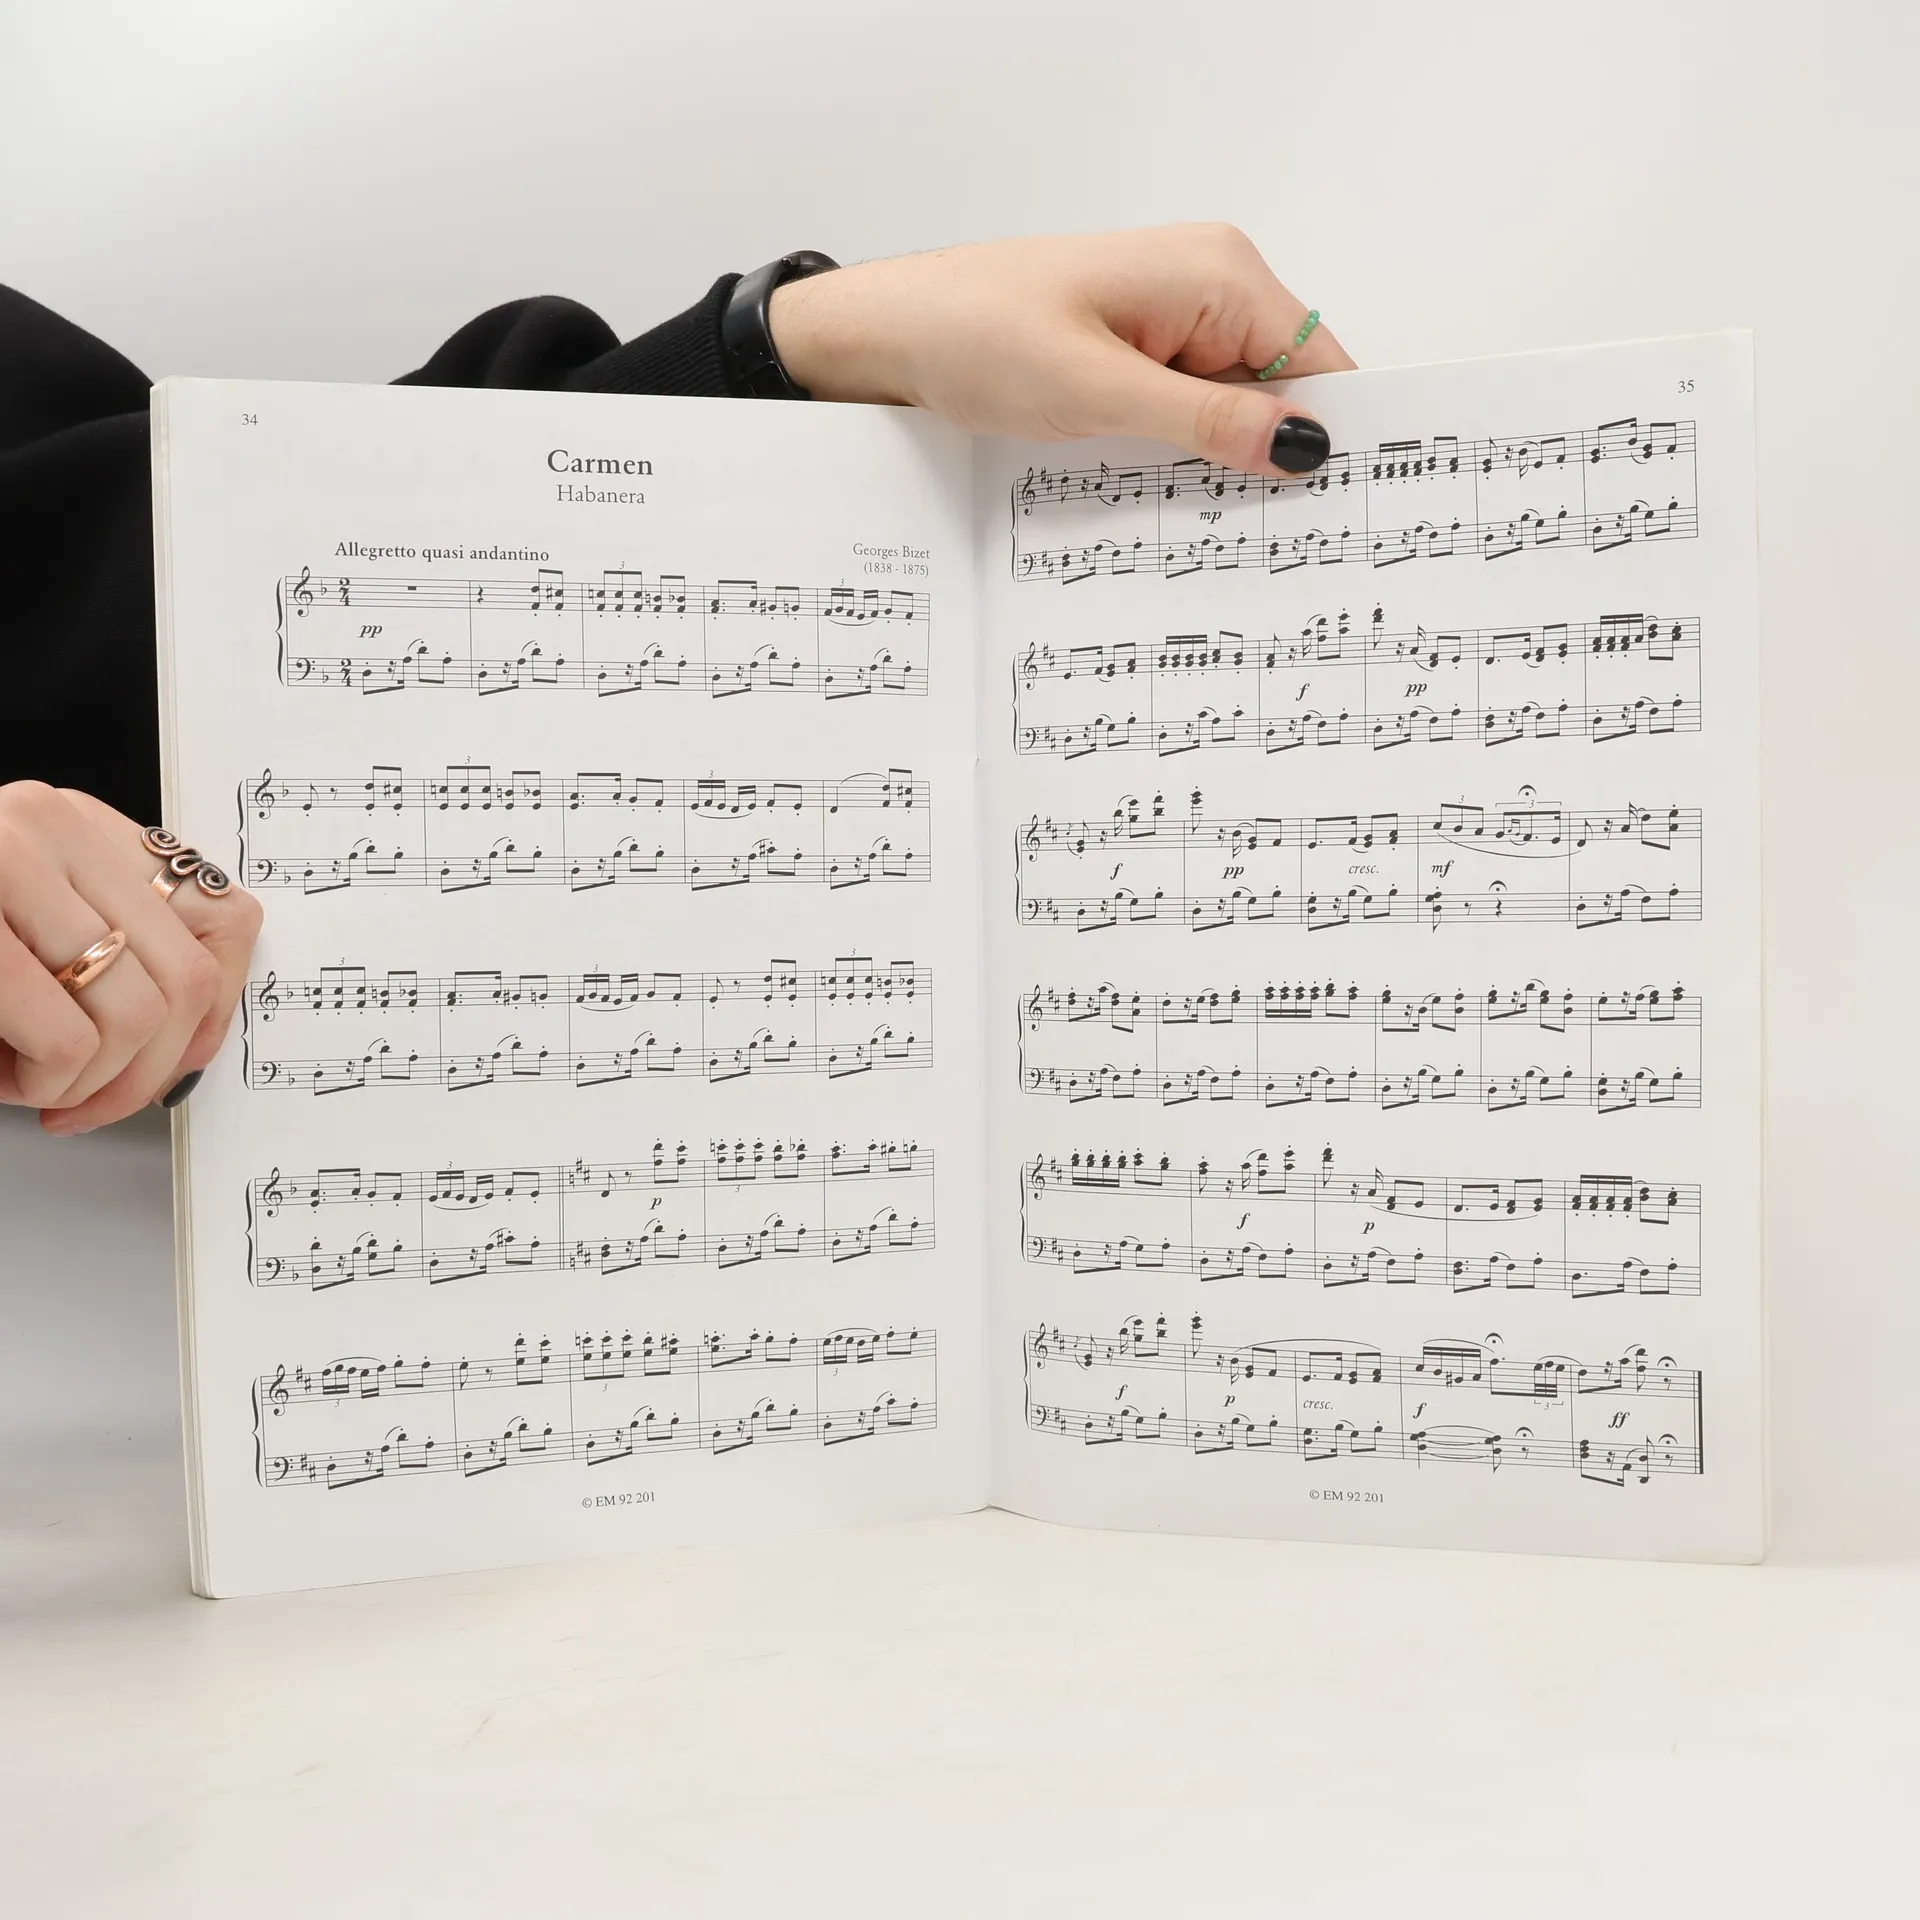 34
Carmen
Habanera
Allegretto quasi andantino
Georges Bizet
(1838 - 1875)
3
3
2
4
pp
2
4
3
3
3
3
3
3
3
p
3
3
3
3
© EM 92 201
35
mp
f
pp
3
3
f
pp
cresc.
mf
f
p
f
p
cresc.
f
3
ff
© EM 92 201